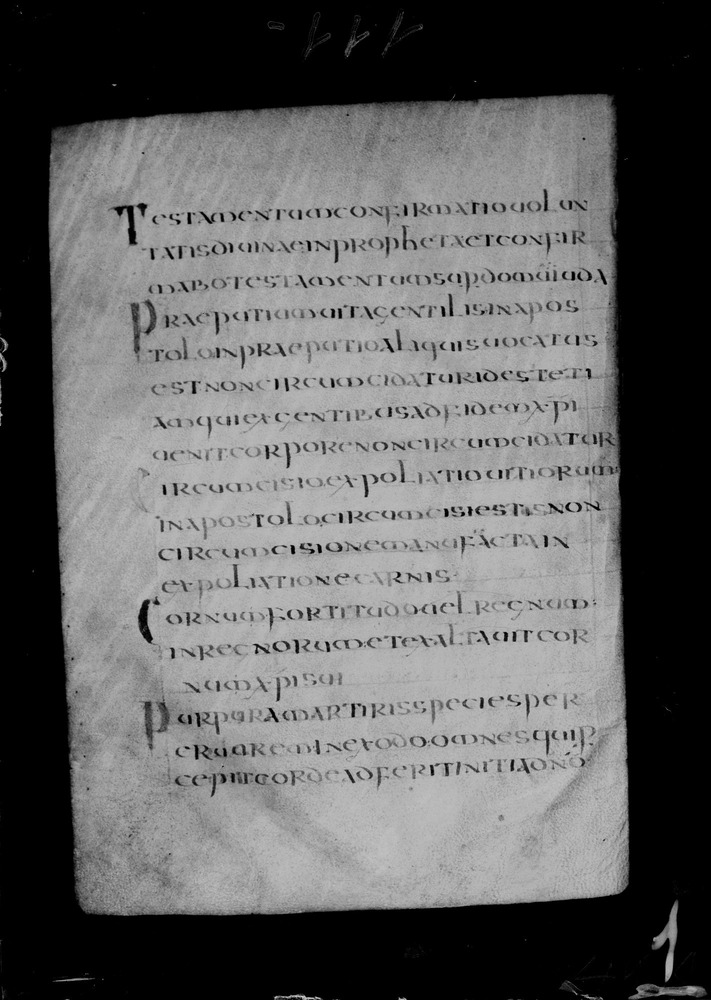 111-
TESTAMENTUMCONFIRMATIOUOLUN
TATISDIUINAEINPROPhETAETCONFIR
MABOTESTAMENTUMSUPDOMŪIUDA
PRAEPUTIUMUITAGENTILISINAPOS
TOLOINPRAEPUTIOALIQUISUOCATUS
ESTNONCIRCUMCIDATURIDESTETI
AMQUIEXGENTIBUSADFIDEMXPI
UENITCORPORENONCIRCUMCIDATUR
CIRCUMCISIOEXPOLIATIOUITIORUM
INAPOSTOLOCIRCUMCISIESTISNON
CIRCUMCISIONEMANUFACTAIN
EXPOLIATIONECARNIS
CORNUMFORTITUDOUELREGNUM:
INREGNORUMETEXALTAUITCOR
NUMXPISUI
PURPURAMARTIRISSPECIESPER
CRUOREMINEXODO·OMNESQUIP
CEPITCORDEADFERITINITIADNO
1